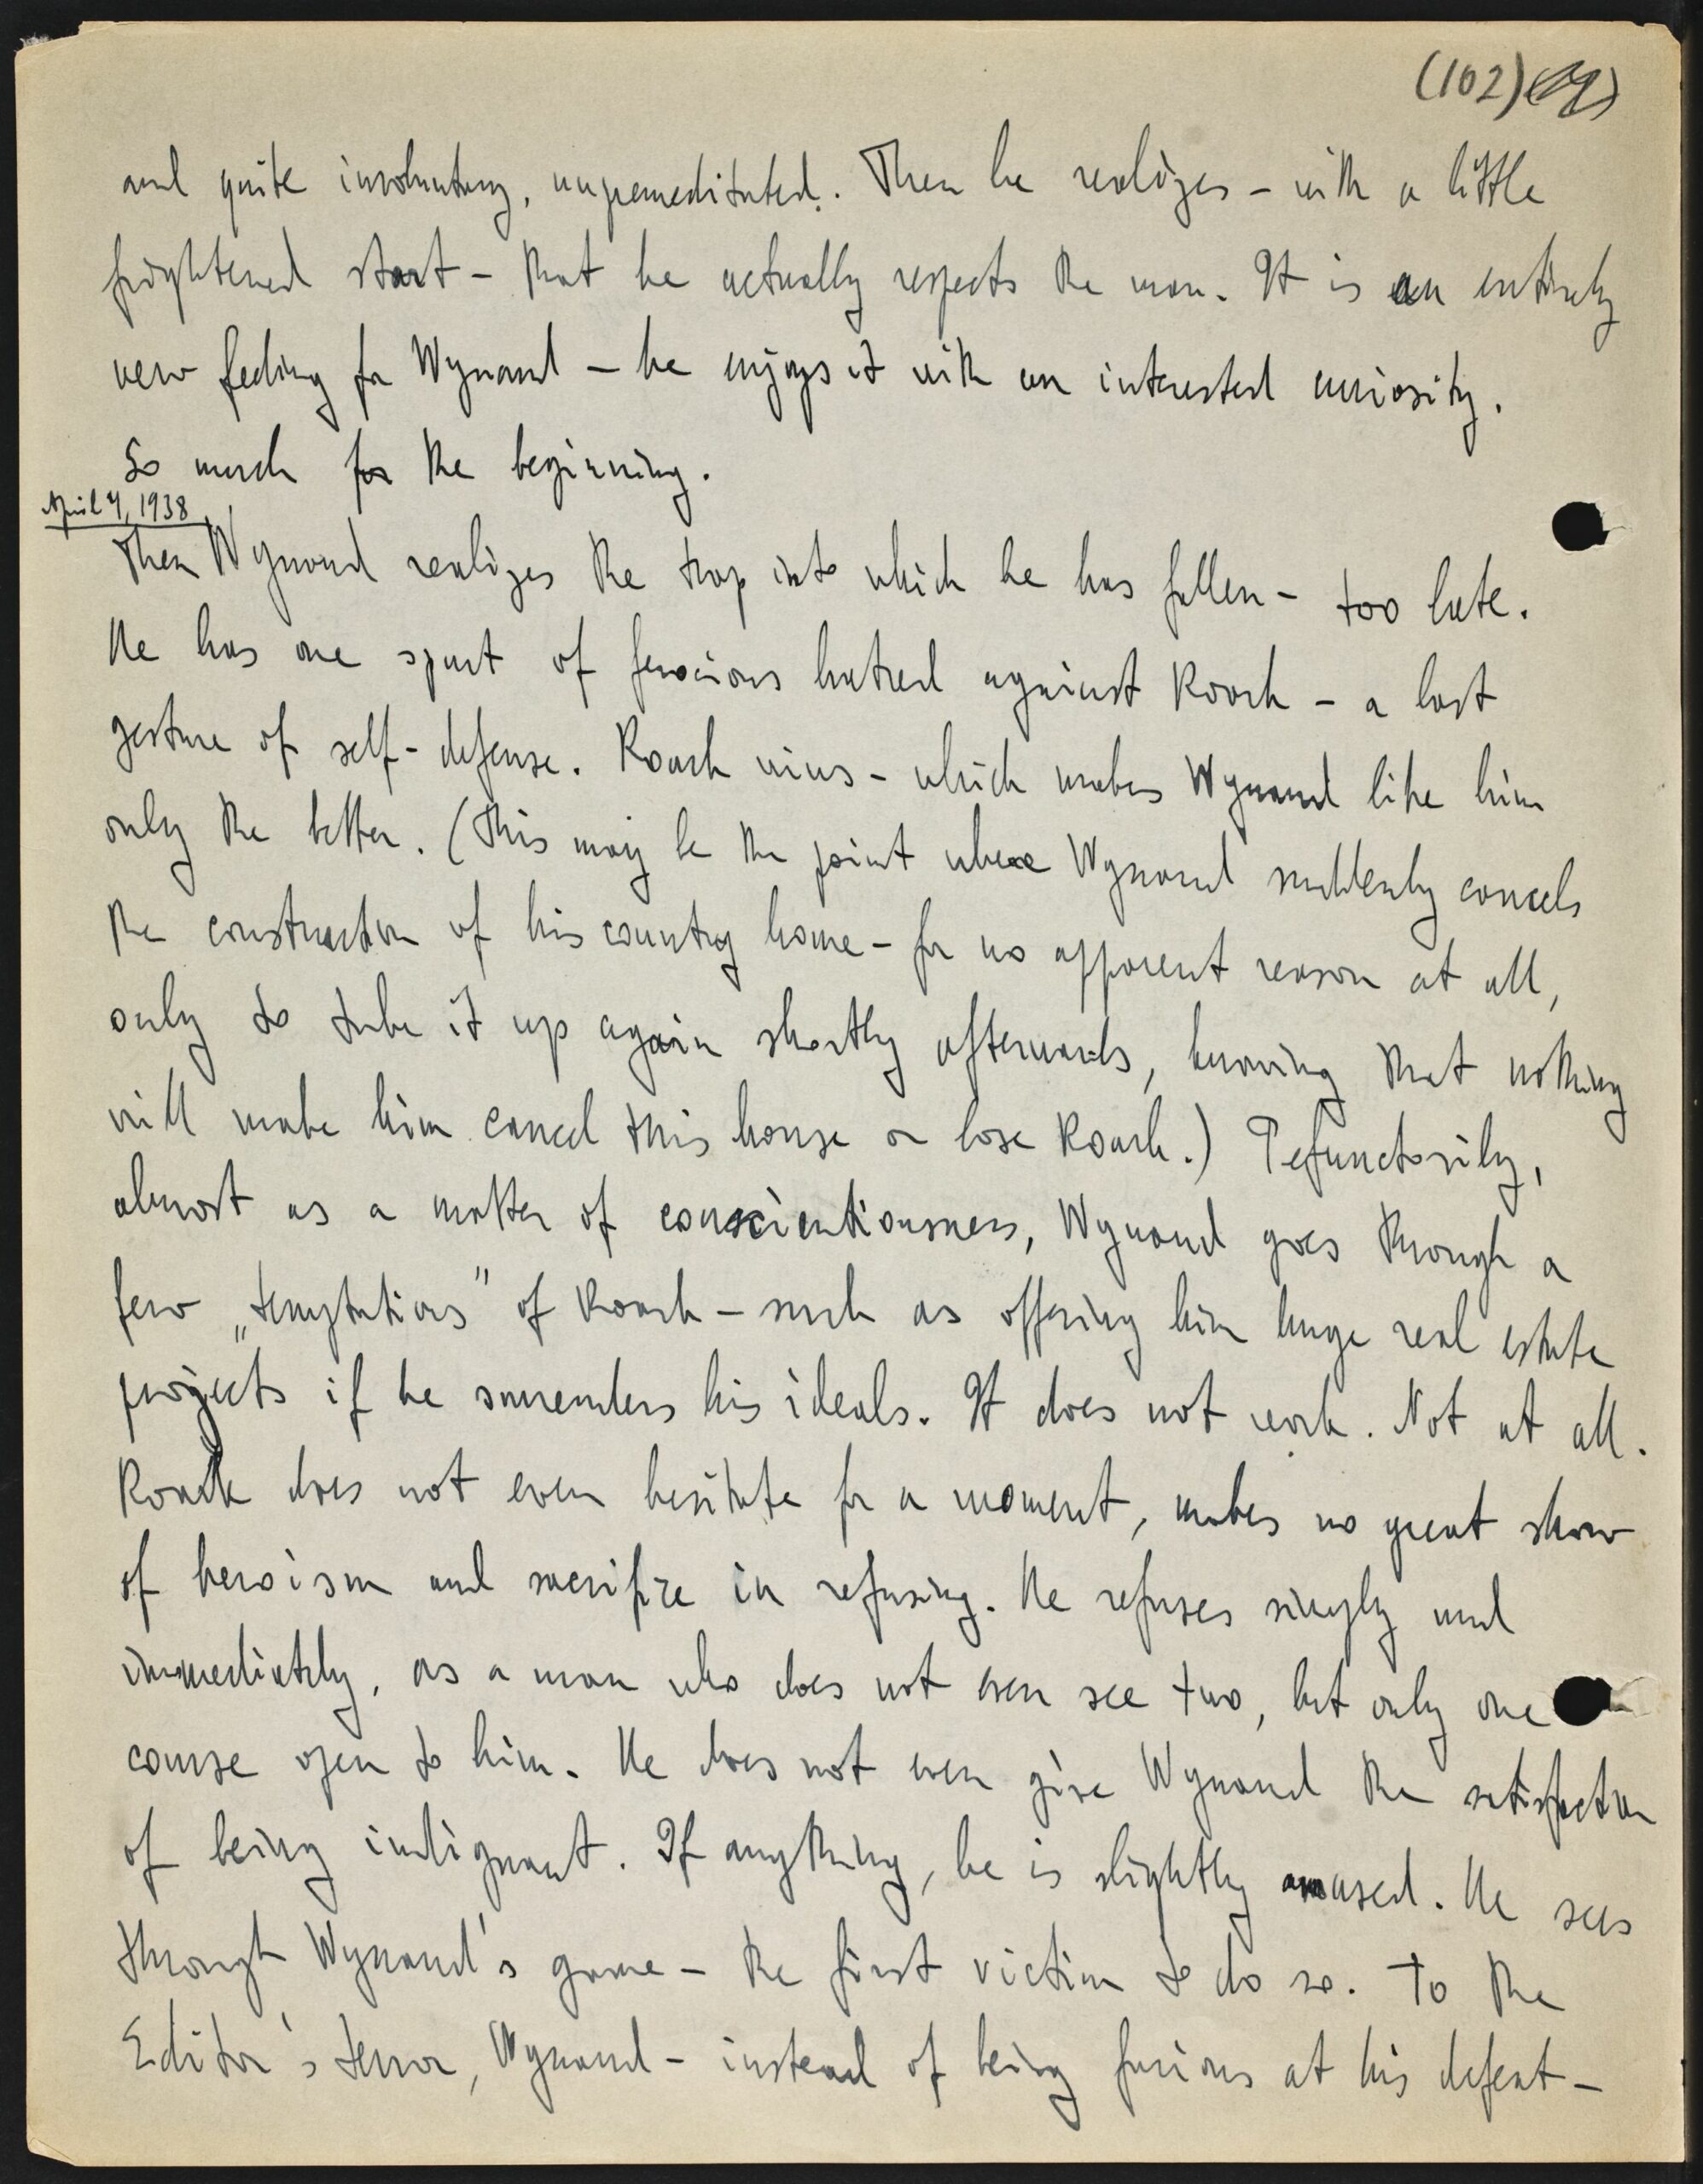 (102)
and quite involuntary, unpremeditated. Then he realizes – with a little
frightened start – that he actually respects the man. It is an entirely
new feeling for Wynand – he enjoys it with an interested curiosity.
So much for the beginning.
April 4, 1938
Then Wynand realizes the trap into which he has fallen – too late.
He has one spurt of ferocious hatred against Roark – a last
gesture of self-defense. Roark wins – which makes Wynand like him
only the better. (This may be the point where Wynand suddenly cancels
the construction of his country home – for no apparent reason at all,
only to take it up again shortly afterwards, knowing that nothing
will make him cancel this house or lose Roark.) Pefunctorily,
almost as a matter of conscientiousness, Wynand goes through a
few „temptations" of Roark – such as offering him huge real estate
projects if he surrenders his ideals. It does not work. Not at all.
Roark does not even hesitate for a moment, makes no great show
of heroism and sacrifice in refusing. He refuses simply and
immediately, as a man who does not even see two, but only one
course open to him. He does not even give Wynand the satisfaction
of being indignant. If anything, he is slightly amused. He sees
through Wynand's game – the first victim to do so. To the
Editor's terror, Wynand – instead of being furious at his defeat –